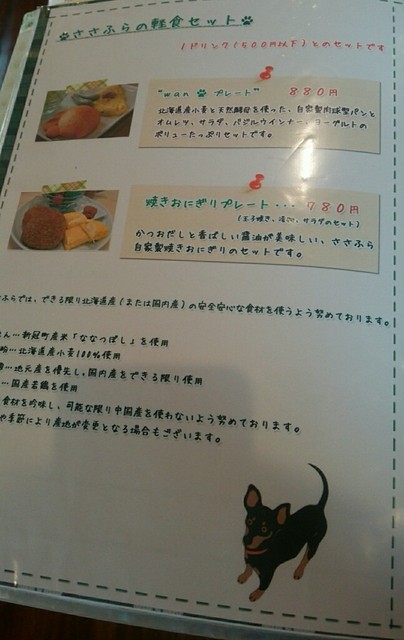 ささふらの軽食セット
(1ドリンク(500円以下)とのセットです
"wan プレート" 880円
北海道産小麦と天然酵母を使った、自家製肉球型パンと
オムレツ、サラダ、バジルウインナー、ヨーグルトの
ボリュームたっぷりセットです。
焼きおにぎりプレート・・・780円
(玉子焼き、漬物、サラダのセット)
かつおだしと香ばしい醤油が美味しい、ささふら
自家製焼きおにぎりのセットです。
ふらでは、できる限り北海道産(または国内産)の安全安心な食材を使うよう努めております。
新冠町産米「ななつぼし」を使用
北海道産小麦100%使用
地元産を優先し、国内産をできる限り使用
国産若鶏を使用
食材を吟味し、可能な限り中国産を使わないよう努めております。
や季節により産地が変更となる場合もございます。